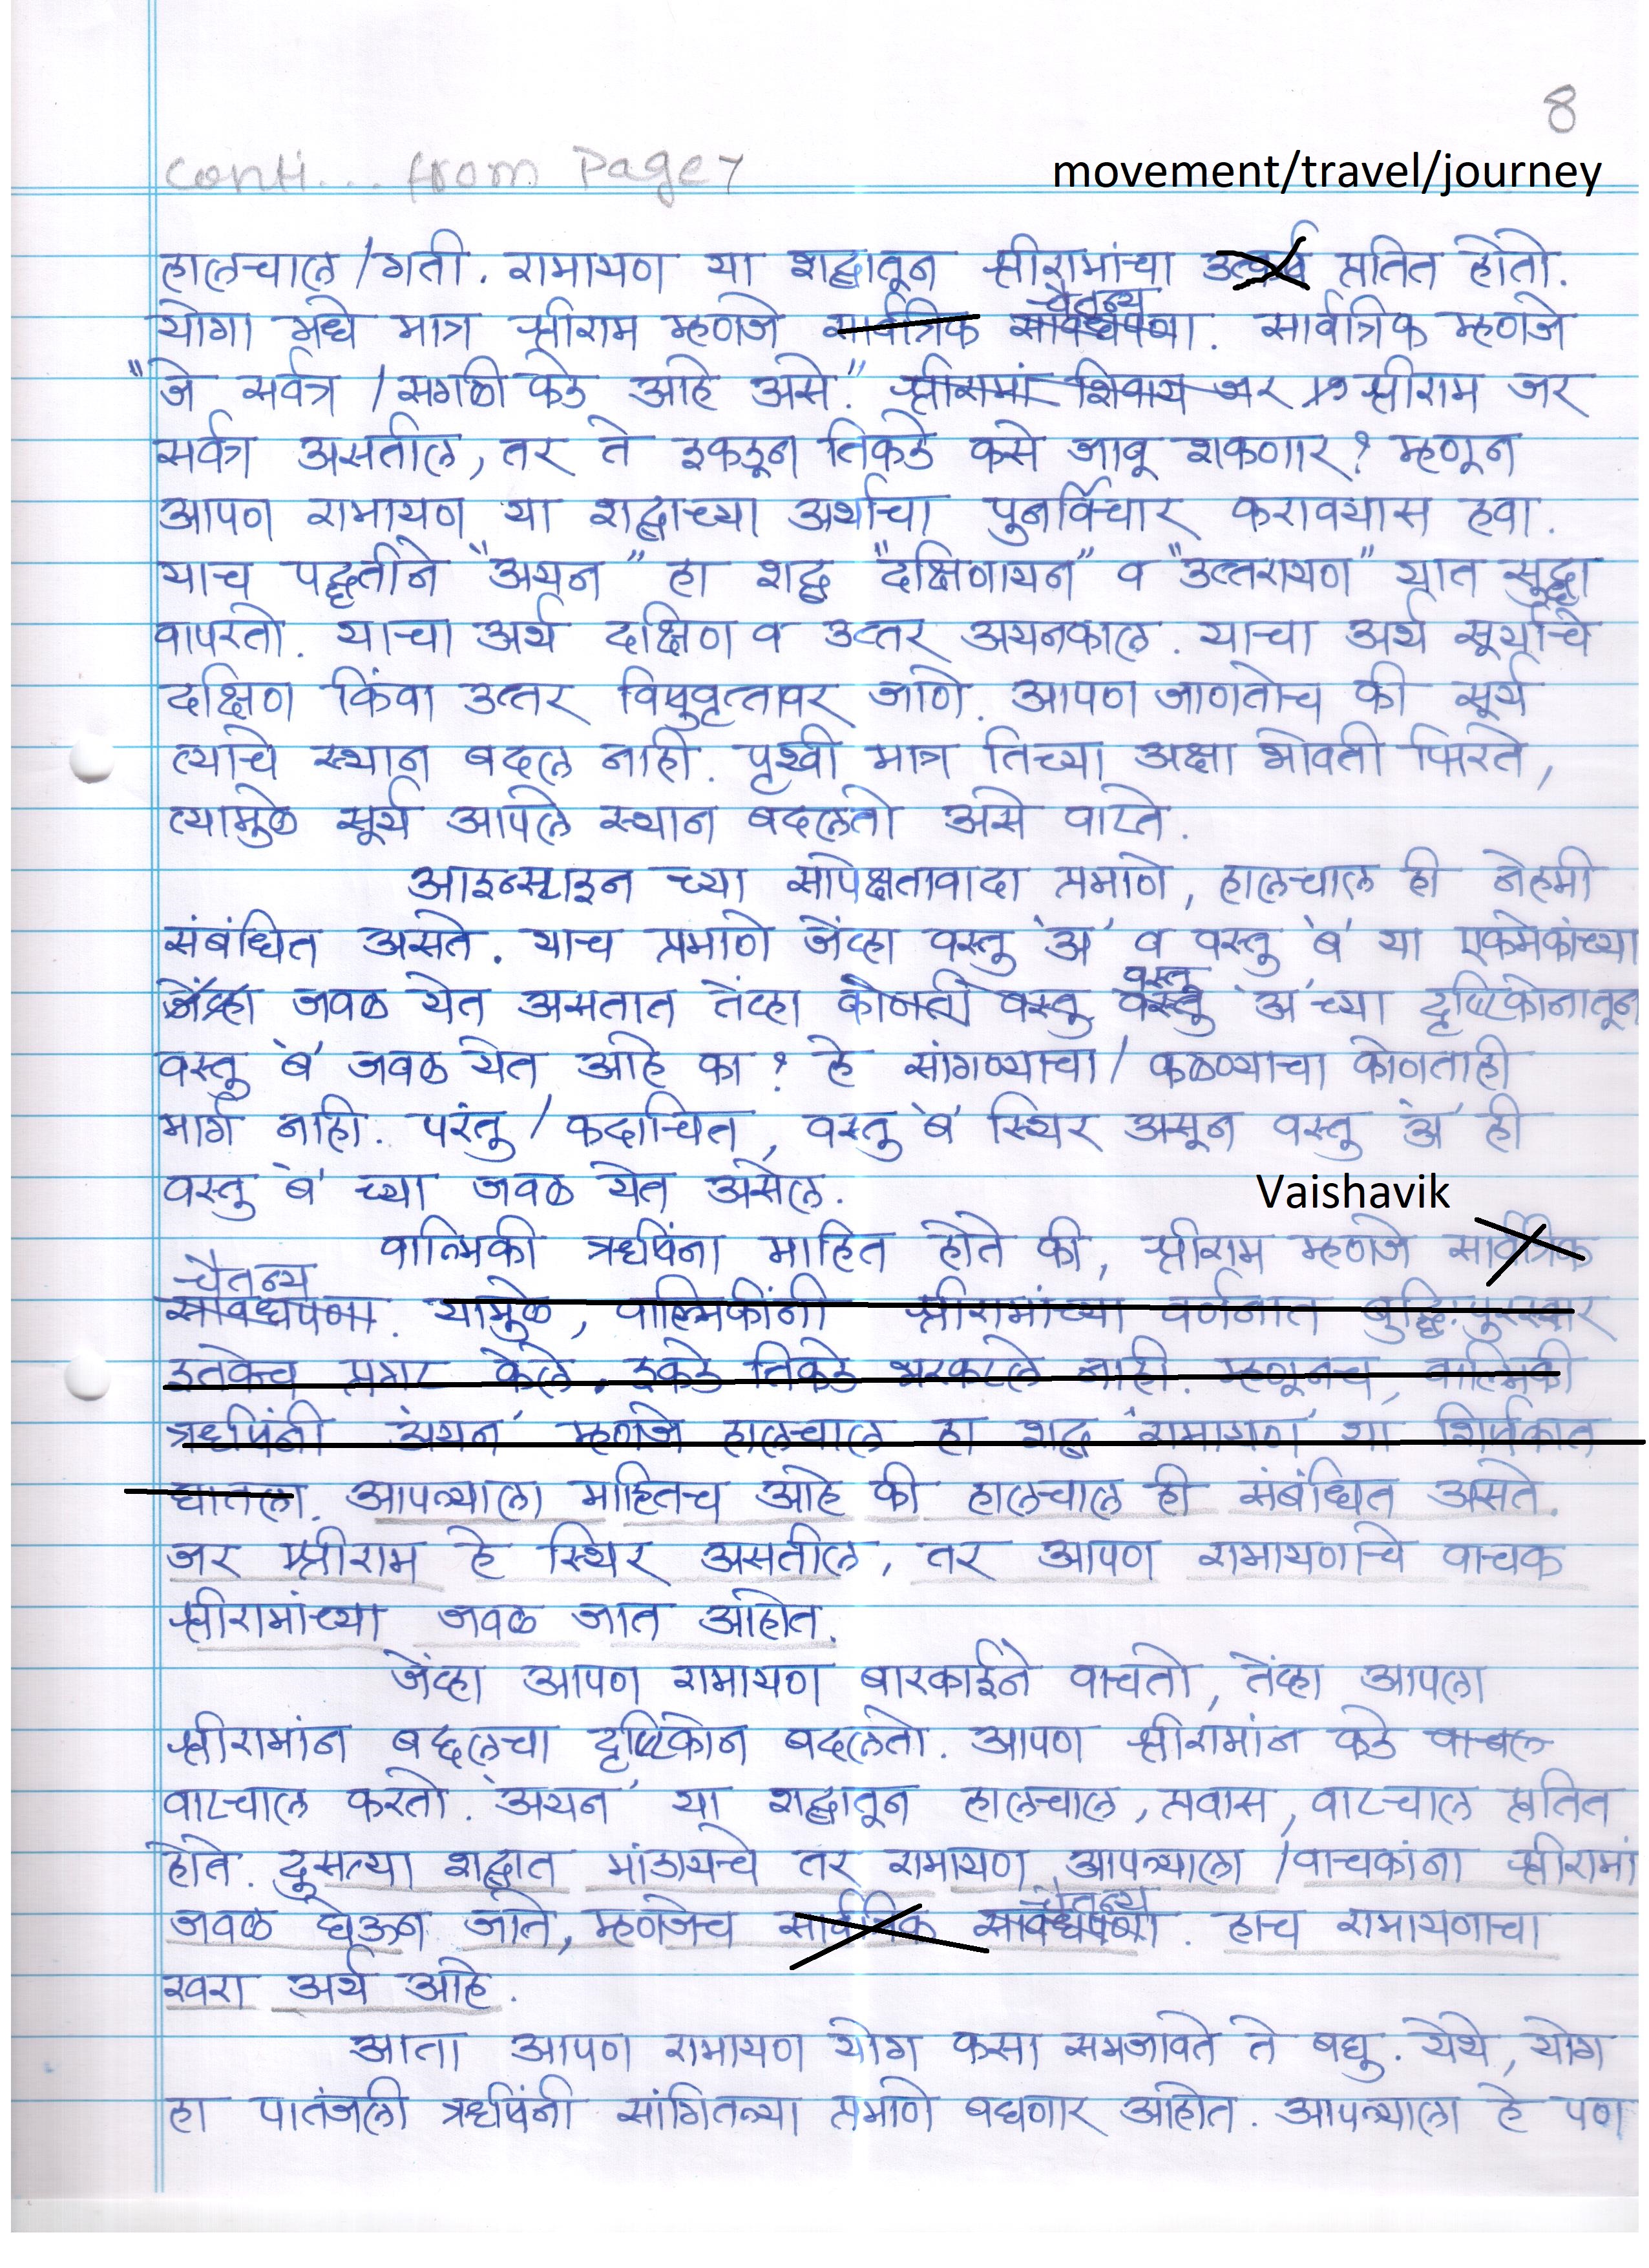 8
conti... from Page 7
movement/travel/journey
हालचाल/गती. रामायण या शद्बातून श्रीरामांचा उत्कर्ष प्रतित होतो.
चैतन्य
योगा मधे मात्र श्रीराम म्हणजे सार्वत्रिक सावधपणा. सार्वत्रिक म्हणजे
"जे सर्वत्र/सगळी कडे आहे असे." श्रीरामां शिवाय जर श्रीराम जर
सर्वत्र असतील, तर ते इकडून तिकडे कसे जावू शकणार? म्हणून
आपण रामायण या शद्बाच्या अर्थाचा पुनर्विचार करावयास हवा.
याच पद्धतीने "अयन" हा शद्ब "दक्षिणायन" व "उत्तरायण" यात सुद्धा
वापरतो. याचा अर्थ दक्षिण व उत्तर अयनकाल. याचा अर्थ सूर्याचे
दक्षिण किंवा उत्तर विषुवृत्तावर जाणे. आपण जाणतोच की सूर्य
त्याचे स्थान बदलत नाही. पृथ्वी मात्र तिच्या अक्षा भोवती फिरते,
त्यामुळे सूर्य आपले स्थान बदलतो असे वाटते.
आइन्स्टाइन च्या सापेक्षतावादा प्रमाणे, हालचाल ही नेहमी
संबंधित असते. याच प्रमाणे जेंव्हा वस्तु 'अ' व वस्तु 'ब' या एकमेकांच्या
वस्तु
जेंव्हा जवळ येत असतात तेंव्हा कोनती वस्तु वस्तु 'अ'च्या दृष्टिकोनातून
वस्तु 'ब' जवळ येत आहे का? हे सांगण्याचा/कळण्याचा कोणताही
मार्ग नाही. परंतु/कदाचित, वस्तु 'ब' स्थिर असून वस्तु 'अ' ही
वस्तु 'ब' च्या जवळ येत असेल.
Vaishavik
वाल्मिकी ऋषिंना माहित होते की, श्रीराम म्हणजे सार्वत्रिक
चैतन्य
सावधपणा. यामुळे, वाल्मिकींनी श्रीरामांच्या वर्णनात बुद्धिपुरस्कार
इतकेच प्रगट केले. इकडे तिकडे भरकटले नाही. म्हणूनच, वाल्मिकी
ऋषिंनी 'अयन' म्हणजे हालचाल हा शद्ब 'रामायण' या शिर्षकात
घातला. आपल्याला माहितच आहे की हालचाल ही संबंधित असते.
जर श्रीराम हे स्थिर असतील, तर आपण रामायणाचे वाचक
श्रीरामांच्या जवळ जात आहोत.
जेंव्हा आपण रामायण बारकाईने वाचतो, तेंव्हा आपला
श्रीरामांन बद्दलचा दृष्टिकोन बदलतो. आपण श्रीरामांन कडे वाचल
वाटचाल करतो. 'अयन' या शद्बातून हालचाल, प्रवास, वाटचाल प्रतित
होते. दुसऱ्या शद्बात मांडायचे तर रामायण आपल्याला/वाचकांना श्रीरामां
चैतन्य
जवळ घेऊन जाते, म्हणजेच सार्वत्रिक सावधपणा. हाच रामायणाचा
खरा अर्थ आहे.
आता आपण रामायण योग कसा समजावते ते बघु. येथे, योग
हा पातंजली ऋषिंनी सांगितल्या प्रमाणे बघणार आहोत. आपल्याला हे पण